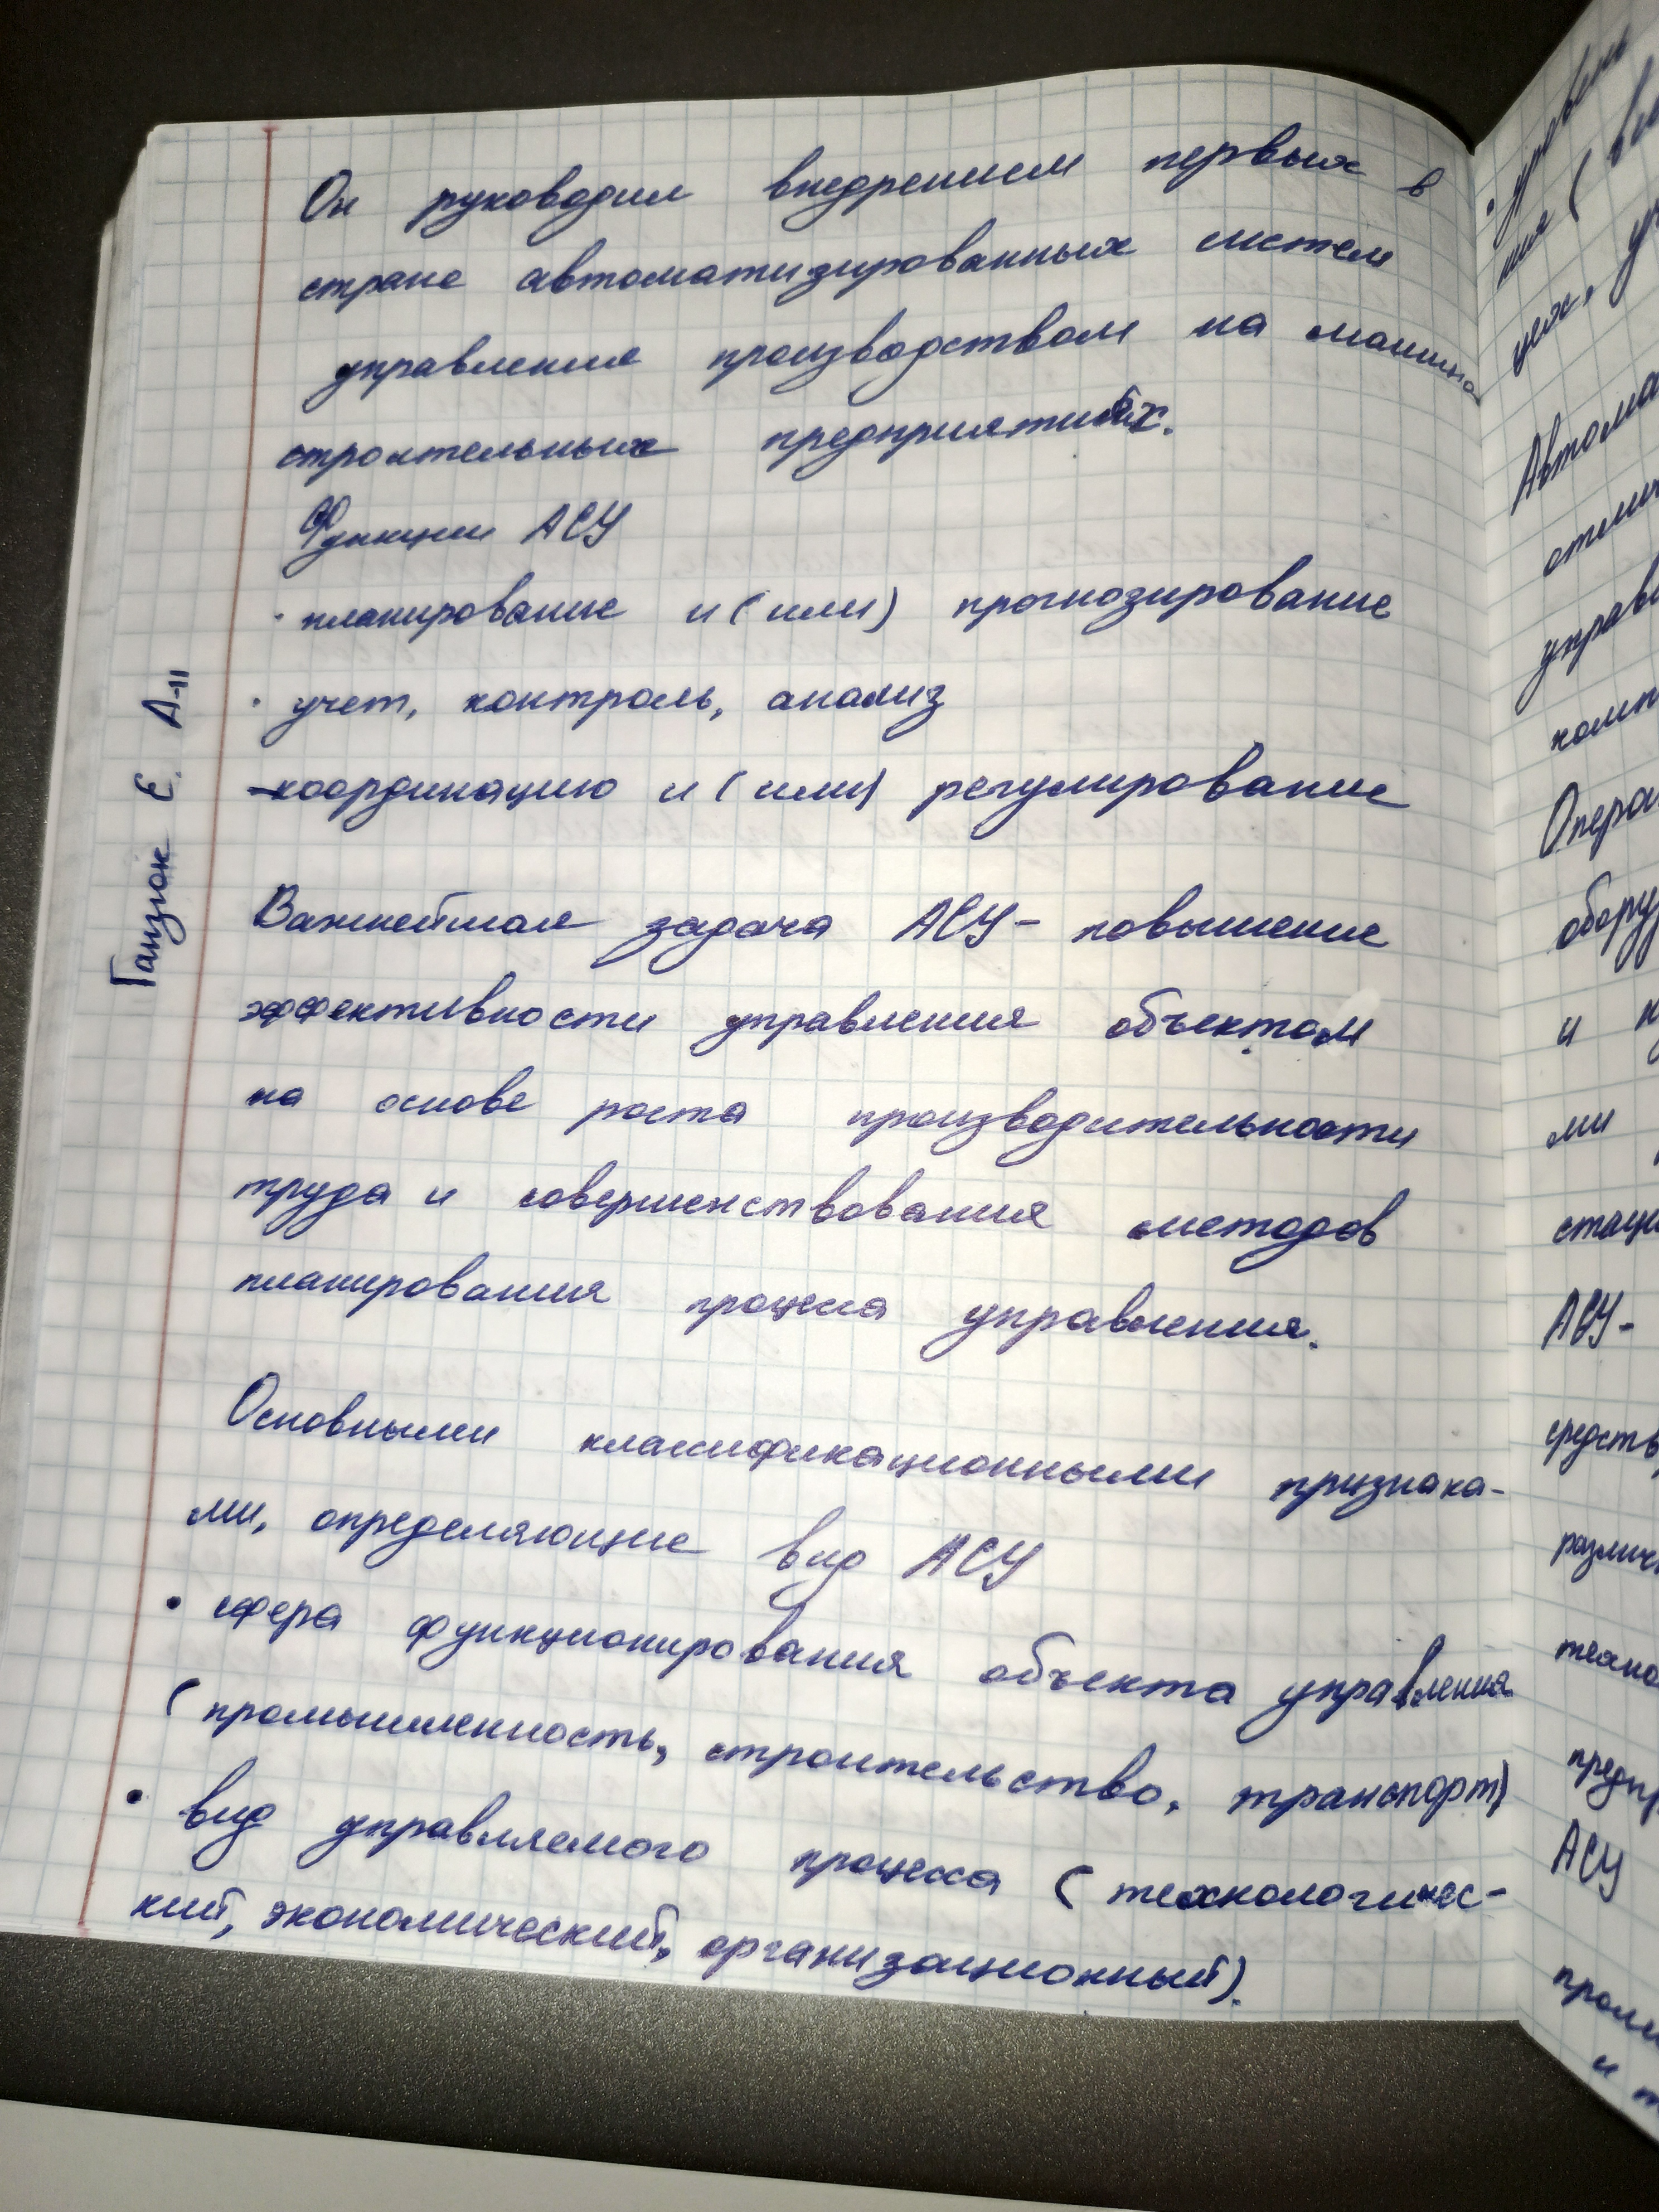 Он руководил внедрением первых в
стране автоматизированных систем
управления производством на машино
строительных предприятиях.
Функции АСУ
· планирование и (или) прогнозирование
· учет, контроль, анализ
-координацию и (или) регулирование
Важнейшая задача АСУ- повышение
эффективности управления объектом
на основе роста производительности
труда и совершенствования методов
планирования процесса управления.
Основными классификационными признака-
ми, определяющие вид АСУ
• сфера функционирования объекта управления
(промышленность, строительство, транспорт)
• вид управляемого процесса (технологичес-
кий, экономический, организационный).
Ганзюк Е. А-11
· уровень
ния (
цех,
Автома
отлич
управл
комп
Опера
обору
и
ми
стаци
АСУ-
средств
различ
техно
предпр
АСУ
пром
и т